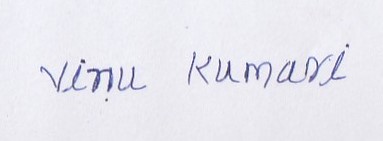 Vinu Kumari